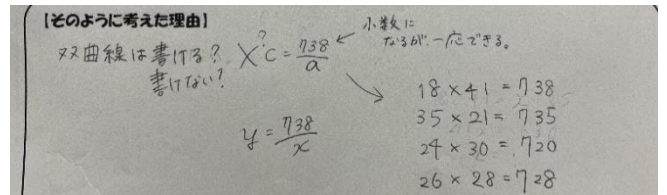 【そのように考えた理由】
双曲線は書ける?
書けない?
X°C = 738/a
← 小数に
なるが、一応できる。
y = 738/x
18 × 41 = 738
35 × 21 = 735
24 × 30 = 720
26 × 28 = 728